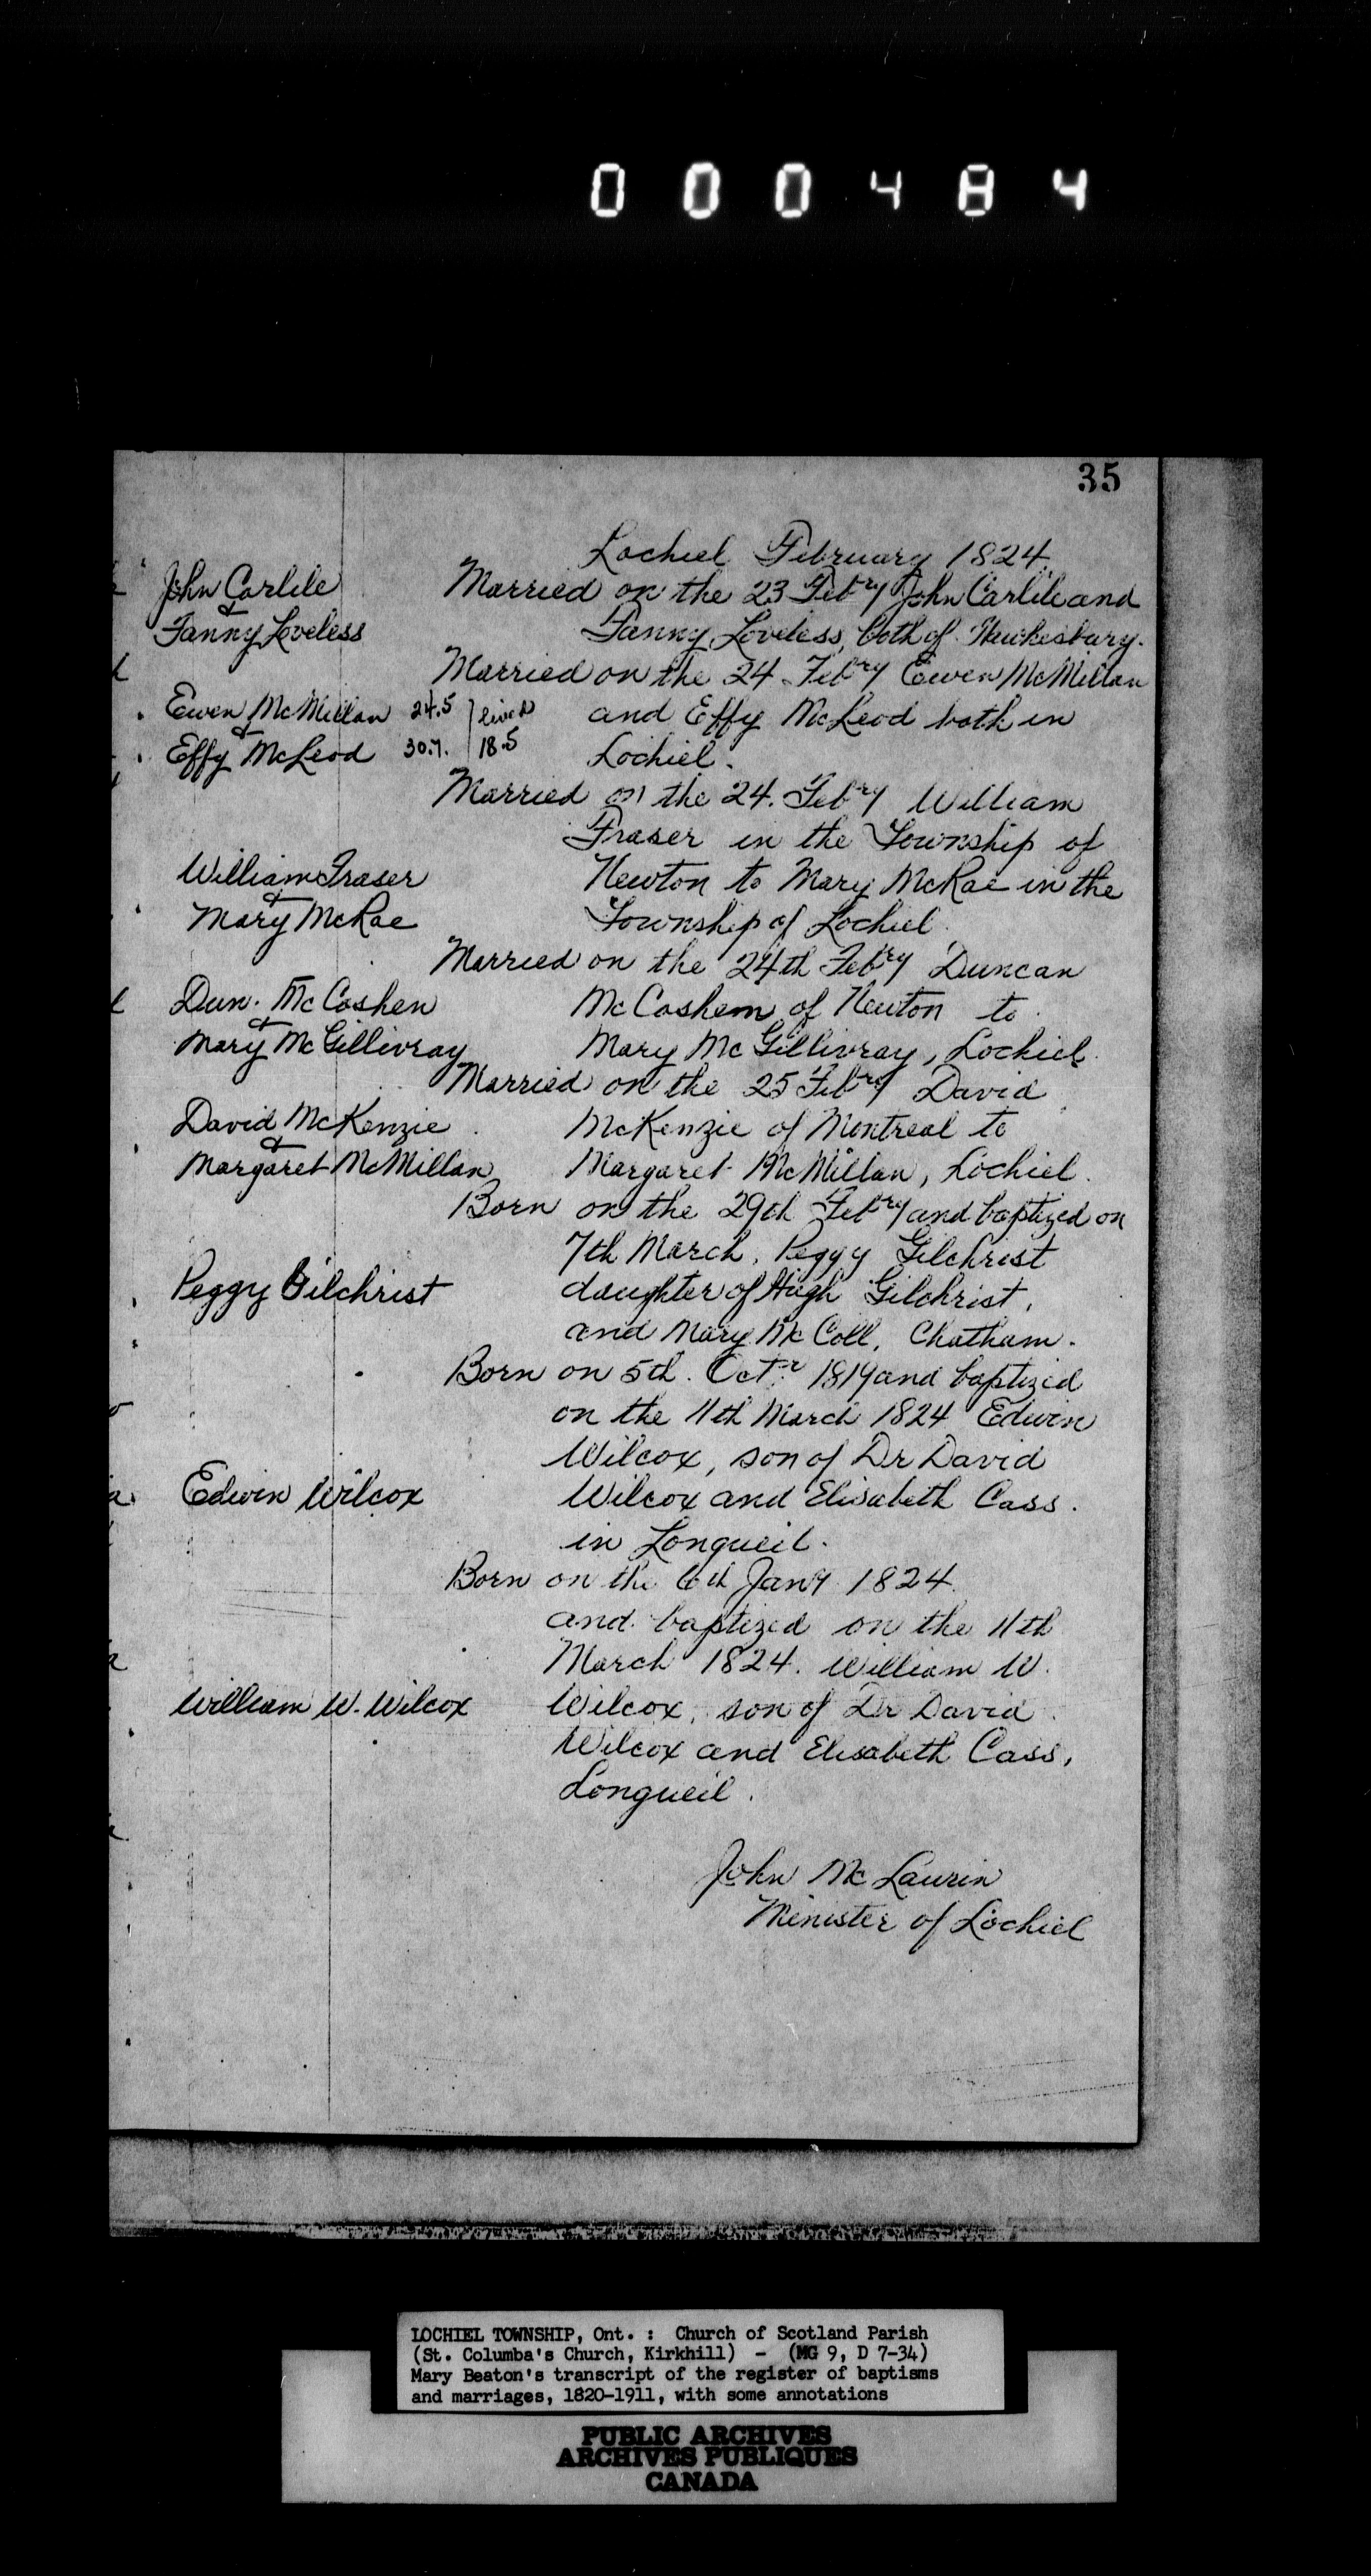 000484
35
Lochiel February 1824
John Carlile
Married on the 23 Febry John Carlile and
&
Fanny Loveless
Fanny Loveless, both of Hawkesbury.
Married on the 24 Febry Ewen McMillan
Ewen McMillan 24.5 lived
and Effy McLeod both in
&
Effy McLeod 30.7. 18.5
Lochiel.
Married on the 24. Febry William
Fraser in the Township of
William Fraser
Newton to Mary McRae in the
&
Mary McRae
Township of Lochiel.
Married on the 24th Febry Duncan
Dun. McCashen
McCashem of Newton to
&
Mary McGillivray
Mary McGillivray, Lochiel.
Married on the 25 Febry David
David McKenzie
McKenzie of Montreal to
&
Margaret McMillan
Margaret McMillan, Lochiel.
Born on the 29th Febry and baptized on
7th March, Peggy Gilchrist
Peggy Gilchrist
daughter of Hugh Gilchrist,
and Mary McColl, Chatham.
Born on 5th. Octr 1819 and baptized
on the 11th March 1824 Edwin
Wilcox, son of Dr David
Edwin Wilcox
Wilcox and Elisabeth Cass.
in Longueil.
Born on the 6th Jany 1824
and baptized on the 11th
March 1824. William W.
William W. Wilcox
Wilcox, son of Dr David
Wilcox and Elisabeth Cass,
Longueil.
John McLaurin
Minister of Lochiel
LOCHIEL TOWNSHIP, Ont. : Church of Scotland Parish
(St. Columba's Church, Kirkhill) - (MG 9, D 7-34)
Mary Beaton's transcript of the register of baptisms
and marriages, 1820-1911, with some annotations
PUBLIC ARCHIVES
ARCHIVES PUBLIQUES
CANADA